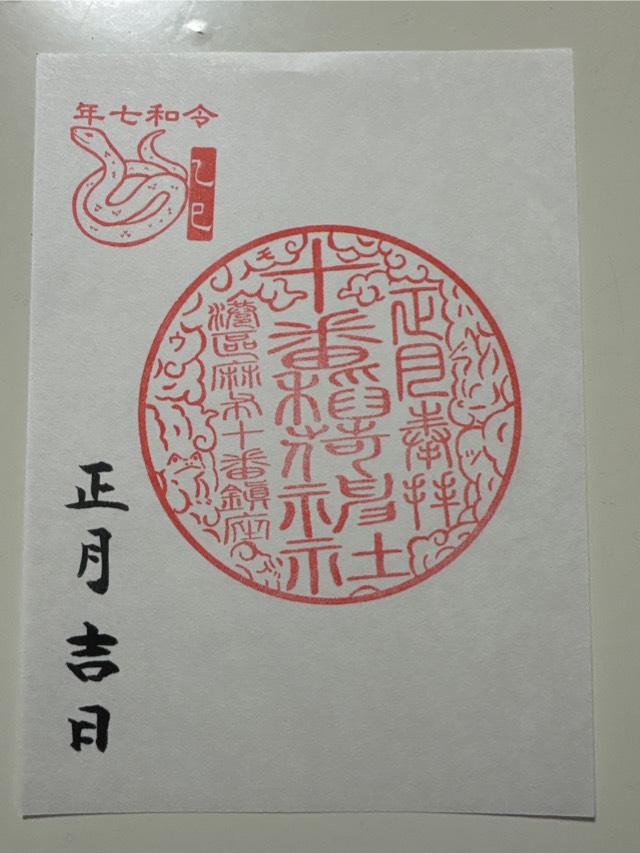 令和七年
乙巳
正月奉拝
十番稲荷神社
港區麻布十番鎮座
正月吉日